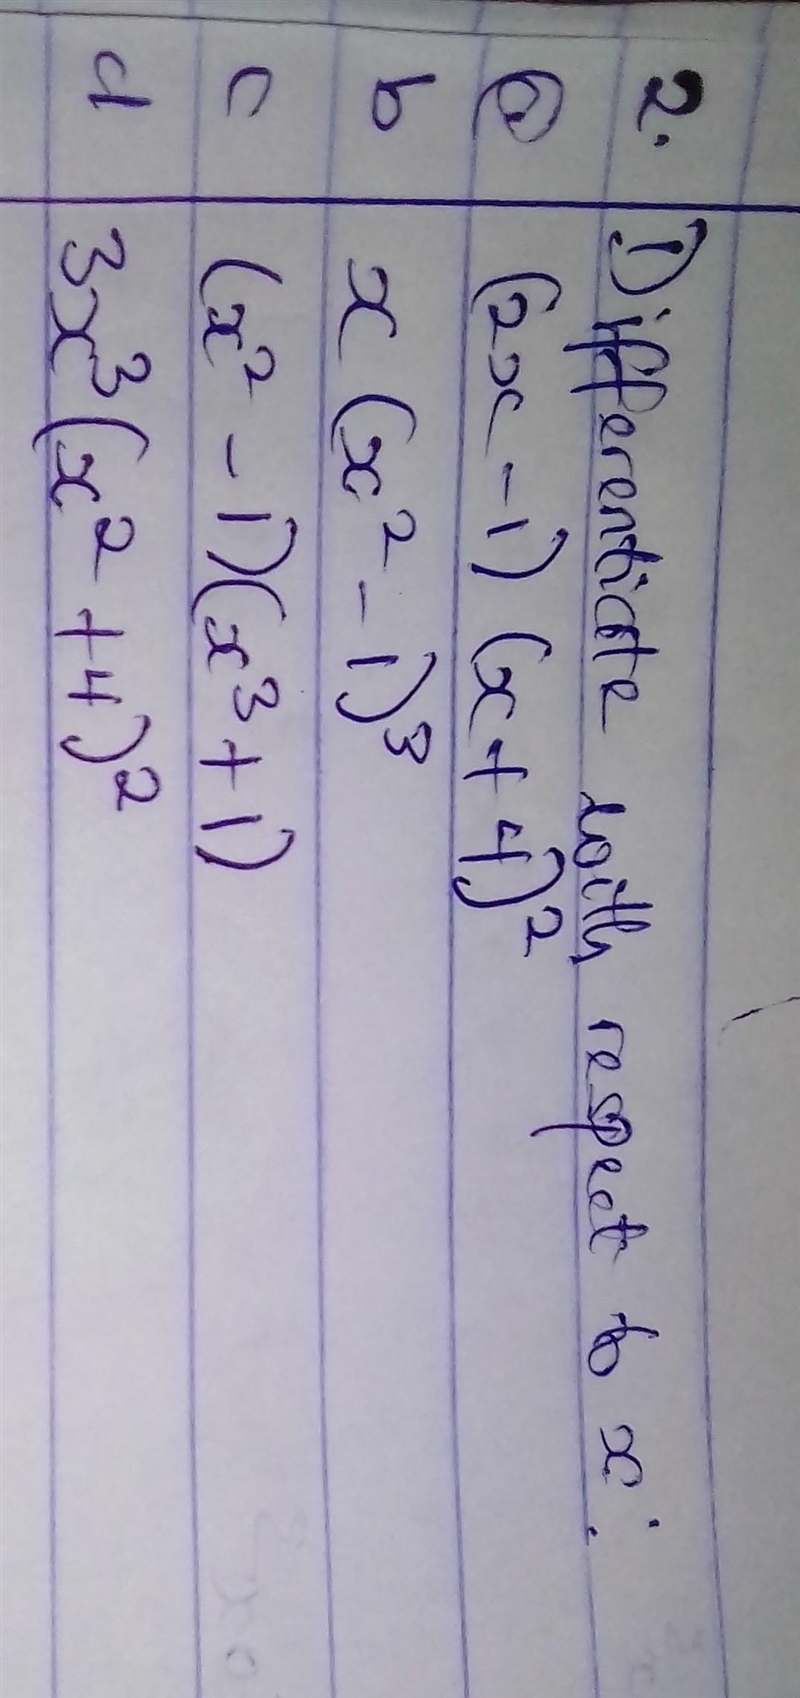 2. Differentiate with respect to x:
ⓐ (2x - 1) (x + 4)²
b x (x² - 1)³
c (x² - 1)(x³ + 1)
d 3x³(x² + 4)²